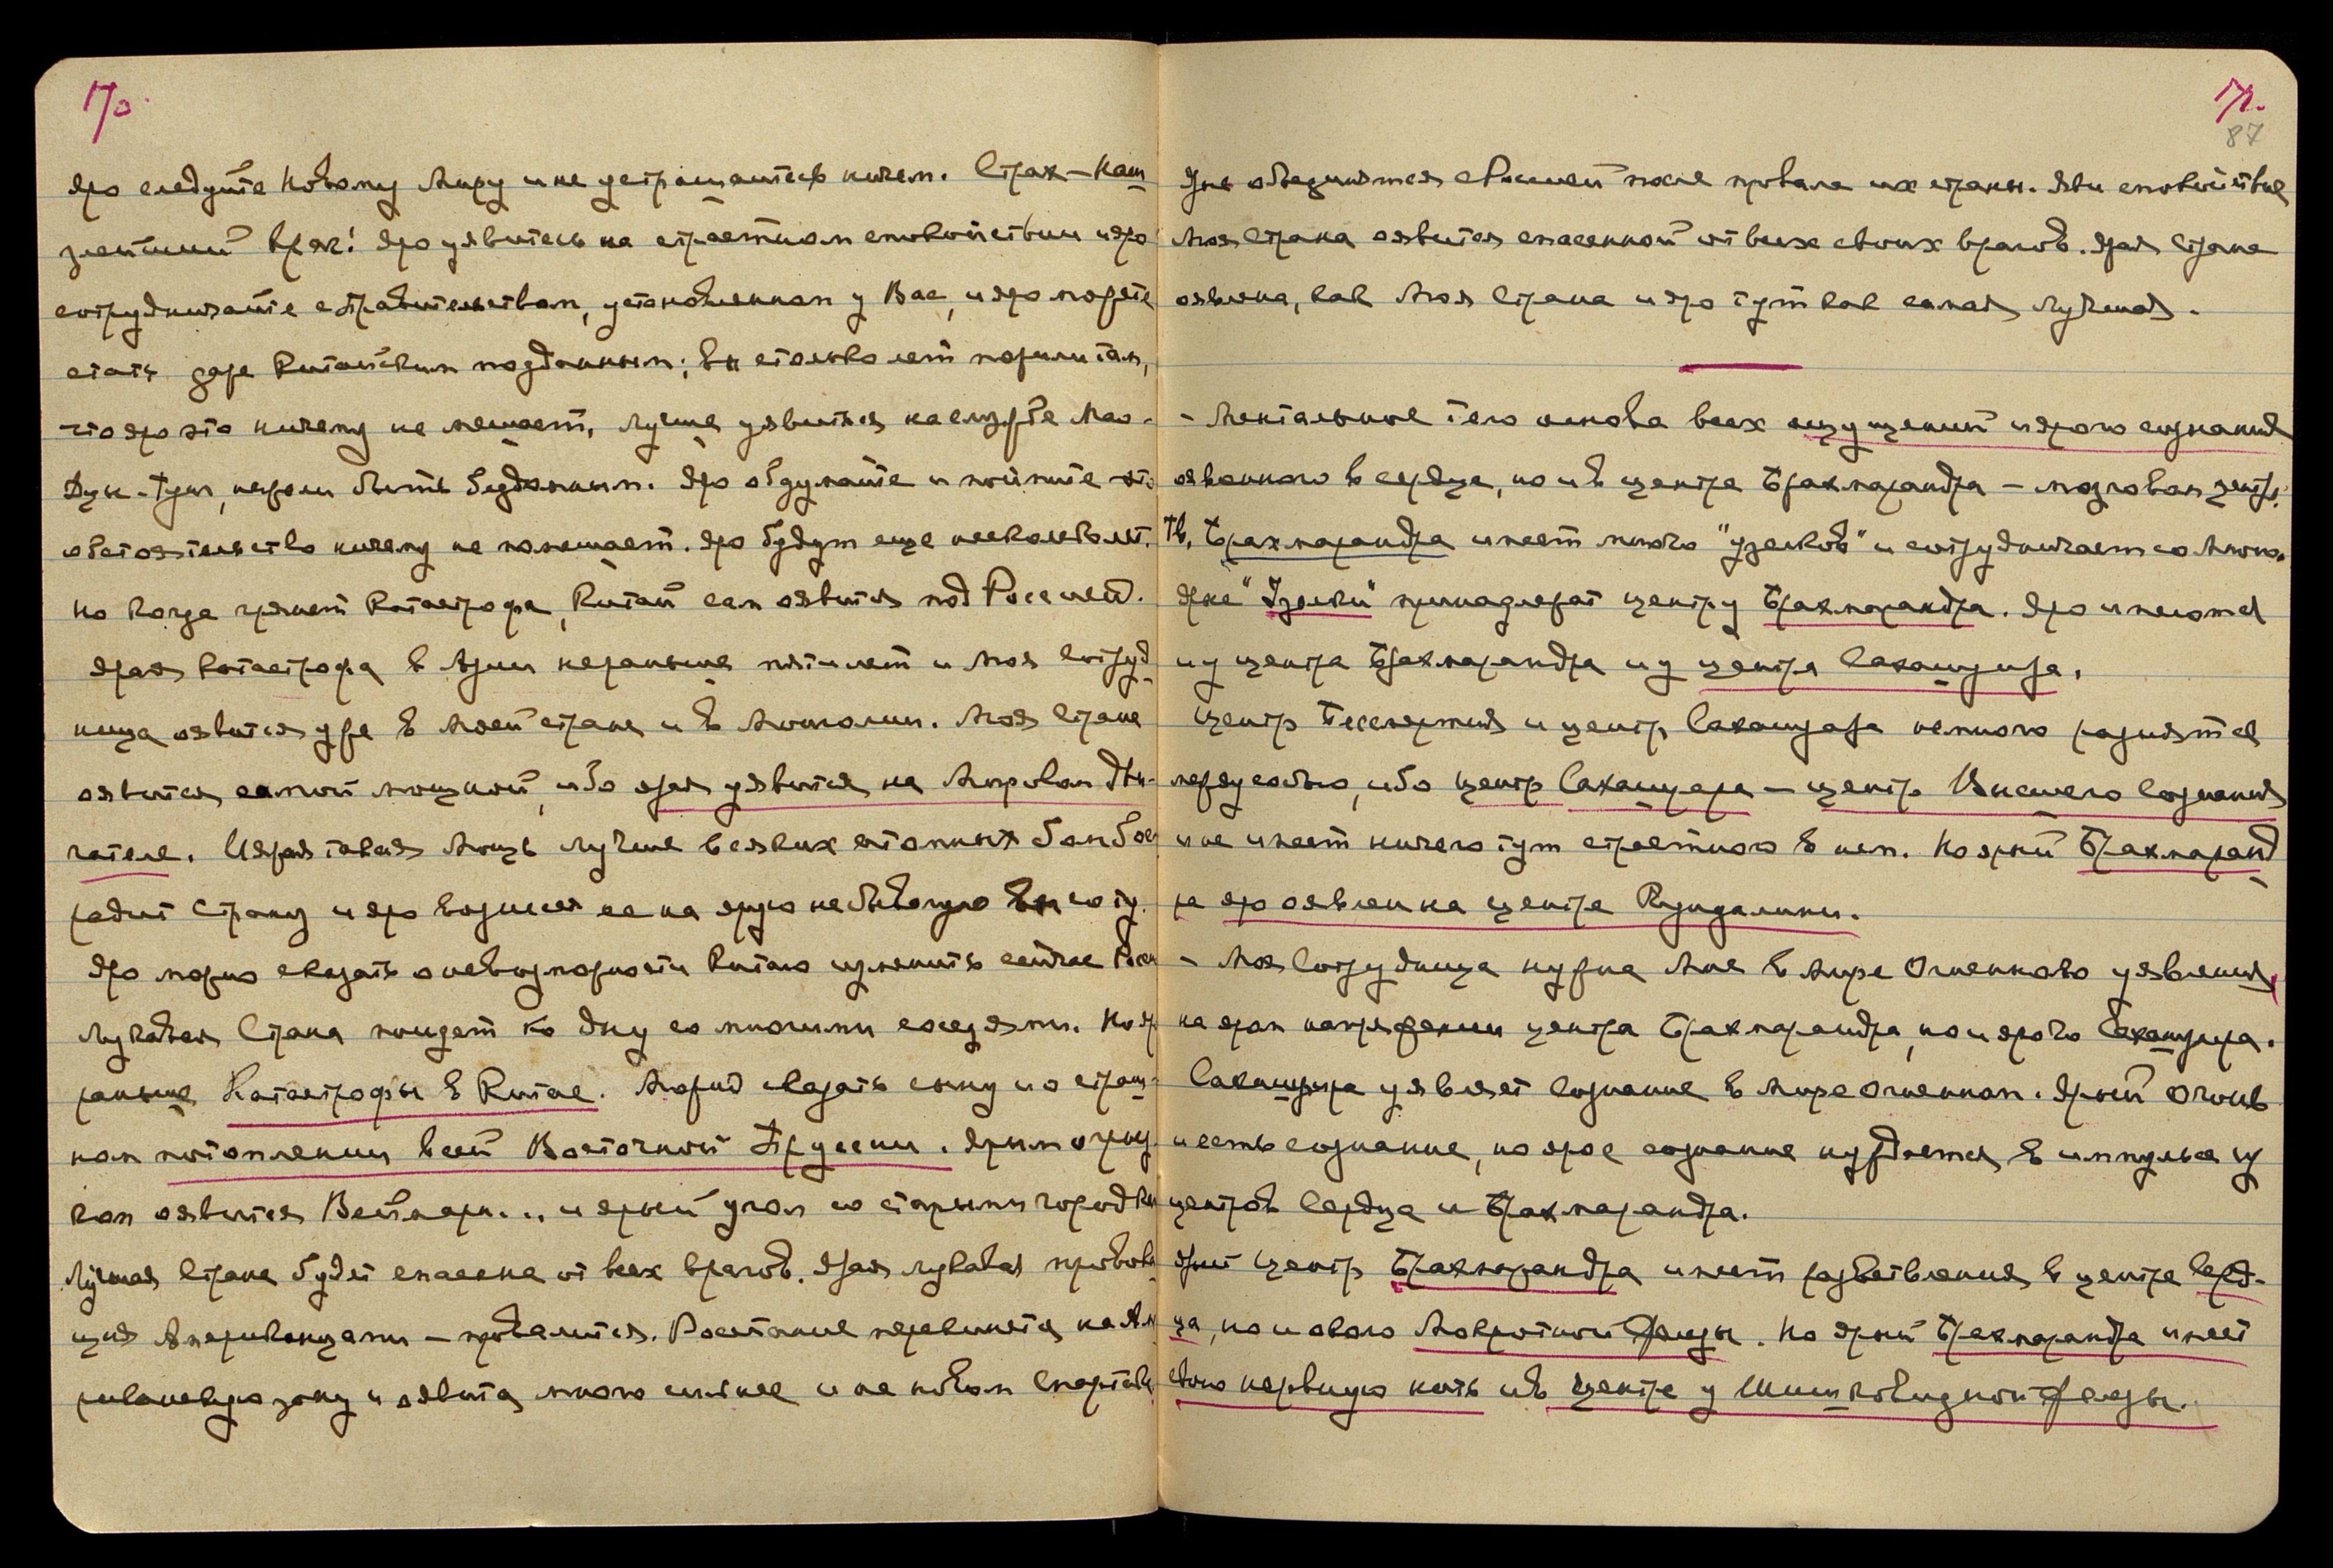 170.
Яро следуйте Новому Миру и не устрашайтесь ничем. Страх – наш
злейший враг! Яро уявитесь на страстном спокойствии и яро
сотрудничайте с правительством, установленном у Вас, и яро можете
стать даже Китайским подданным; вы столько лет пожили там,
что яро это ничему не мешает, лучше уявиться на службе Мао-
Дзе-Тунг, нежели быть бездомным. Яро обдумайте и поймите – это
обстоятельство ничему не помешает. Яро будут еще несколько лет,
но когда грянет Катастрофа, Китай сам оявится под Россией.
Ярая катастрофа в Азии не раньше пяти лет и Моя Сотруд-
ница оявится уже в Моей стране и в Монголии. Моя Страна
оявится самой мощной, ибо ярая уявится на Мировом Дви-
гателе. И ярая такая Мощь лучше всяких атомных бомб ог-
радит Страну и яро вознесет ее на ярую небывалую высоту.
Яро можно сказать о невозможности Китаю изменить сейчас Росси
Лукавая Страна пойдет ко дну со многими соседями. Но яр
раньше Катастрофы в Китае. Можно сказать сыну и о страш-
ном потоплении всей Восточной Пруссии. Ярым огрыз-
ком оявится Веймарн... и ярый угол со старыми городкам
Лучшая Страна будет спасена от всех врагов. Ярая лукавая провока-
ция Американцами – провалится. Восстание перекинется на Ам
риканскую зону и оявится много сильнее и на новом Спартак
171.
87
Яро объединятся с Россией после провала их страны. Яви спокойствие
Моя Страна оявится спасенной от всех своих врагов. Ярая Страна
оявлена, как Моя Страна и яро тут как самая Лучшая.
– Ментальное тело основа всех ощущений и ярого сознания
оявленного в сердце, но и в центре Брахмарандра – мозговом центре.
Тв. Брахмарандра имеет много "узелков" и сотрудничает со Мною.
Яркие "Узелки" принадлежат центру Брахмарандра. Яро имеются
и у центра Брахмарандра и у центра Сахашрара.
Центр Бессмертия и центр Сахасрара немного разнятся
между собою, ибо центр Сахашрара – центр Высшего Сознания
и не имеет ничего тут страстного в нем. Но ярый Брахмаранд
ра яро оявлен на центре Кундалини.
– Моя Сотрудница нужна Мне в Мире Огненного уявления
на яром напряжении центра Брахмарандра, но и ярого Сахашрара.
Сахашрара уявляет Сознание в Мире Огненном. Ярый Огонь
и есть сознание, но ярое сознание нуждается в импульсе из
центров Сердца и Брахмарандра.
Ярый центр Брахмарандра имеет разветвления в центре Серд-
ца, но и около Мокротной Железы. Но ярый Брахмарандра имеет
свою нервную нить и в центре у Шишковидной Железы.